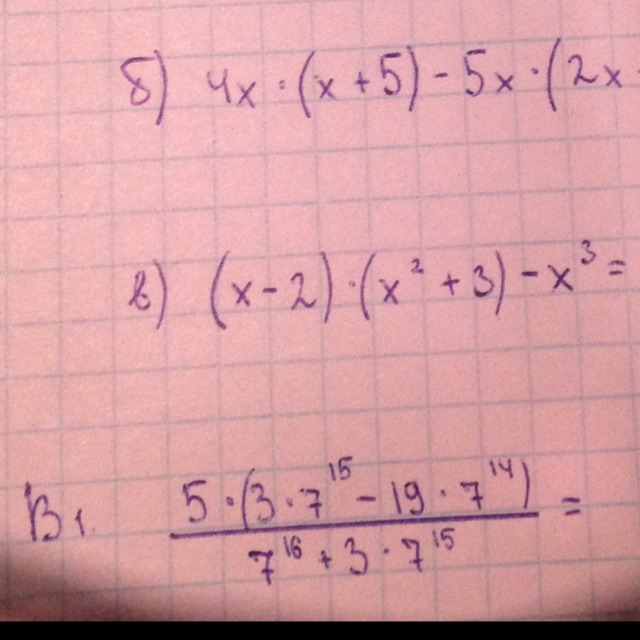 б) 4x · (x + 5) - 5x · (2x
в) (x - 2) · (x² + 3) - x³ =
B1. 5 · (3 · 7¹⁵ - 19 · 7¹⁴) =
7¹⁶ + 3 · 7¹⁵